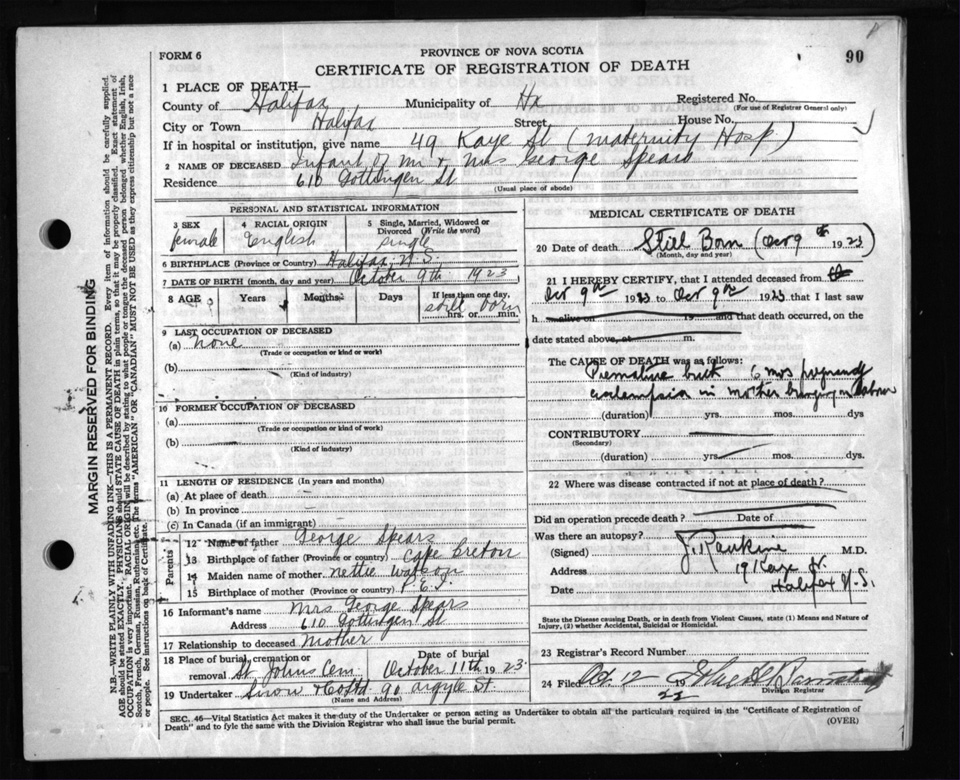 FORM 6
PROVINCE OF NOVA SCOTIA
90
CERTIFICATE OF REGISTRATION OF DEATH
1 PLACE OF DEATH—
County of Halifax Municipality of Hx Registered No.
(For use of Registrar General only)
City or Town Halifax Street House No.
If in hospital or institution, give name 49 Kaye St (Maternity Hosp)
2 NAME OF DECEASED Infant of Mr & Mrs George Spears
Residence 610 Gottingen St
(Usual place of abode)
PERSONAL AND STATISTICAL INFORMATION
3 SEX female
4 RACIAL ORIGIN English
5 Single, Married, Widowed or Divorced (Write the word) single
6 BIRTHPLACE (Province or Country) Halifax N.S.
7 DATE OF BIRTH (month, day and year) October 9th 1923
8 AGE Years Months Days If less than one day, still born hrs. or min.
9 LAST OCCUPATION OF DECEASED
(a) none
(Trade or occupation or kind or work)
(b)
(Kind of industry)
10 FORMER OCCUPATION OF DECEASED
(a)
(Trade or occupation or kind of work)
(b)
(Kind of industry)
11 LENGTH OF RESIDENCE (In years and months)
(a) At place of death
(b) In province
(c) In Canada (if an immigrant)
Parents
12 Name of father George Spears
13 Birthplace of father (Province or country) Cape Breton
14 Maiden name of mother Nettie Watson
15 Birthplace of mother (Province or country) P E I
16 Informant's name Mrs George Spears
Address 610 Gottingen St
17 Relationship to deceased Mother
18 Place of burial, cremation or removal St John Cem
Date of burial October 11th 1923
19 Undertaker Snow & Co Ltd 90 Argyle St.
(Name and Address)
MEDICAL CERTIFICATE OF DEATH
20 Date of death Still Born (Oct 9th 1923)
(Month, day and year)
21 I HEREBY CERTIFY, that I attended deceased from
Oct 9th 1923 to Oct 9th 1923 that I last saw
h alive on 19 and that death occurred, on the
date stated above, at m.
The CAUSE OF DEATH was as follows:
Premature birth 6 mos pregnancy
eclampsia in mother bringing on labour
(duration) yrs. mos. dys
CONTRIBUTORY
(Secondary)
(duration) yrs. mos. dys.
22 Where was disease contracted if not at place of death?
Did an operation precede death? Date of
Was there an autopsy?
(Signed) J. Rankine M.D.
Address 19 Kaye St.
Date Halifax N.S.
State the Disease causing Death, or in death from Violent Causes, state (1) Means and Nature of Injury, (2) whether Accidental, Suicidal or Homicidal.
23 Registrar's Record Number
24 Filed Oct. 12 19
Division Registrar
SEC. 46—Vital Statistics Act makes it the duty of the Undertaker or person acting as Undertaker to obtain all the particulars required in the "Certificate of Registration of
Death" and to fyle the same with the Division Registrar who shall issue the burial permit.
(OVER)
MARGIN RESERVED FOR BINDING
N.B.—WRITE PLAINLY WITH UNFADING INK—THIS IS A PERMANENT RECORD. Every item of information should be carefully supplied.
AGE should be stated EXACTLY. PHYSICIANS should STATE CAUSE OF DEATH in plain terms, so that it may be properly classified. Exact statement of
OCCUPATION is very important. RACIAL ORIGIN will be described by stating to what people or tongue the deceased person belonged whether English, Irish,
Scotch, French, German, Russian, Ruthenian, etc. The terms "AMERICAN" OR "CANADIAN" MUST NOT BE USED as they express citizenship but not a race
or people. See instructions on back of Certificate.